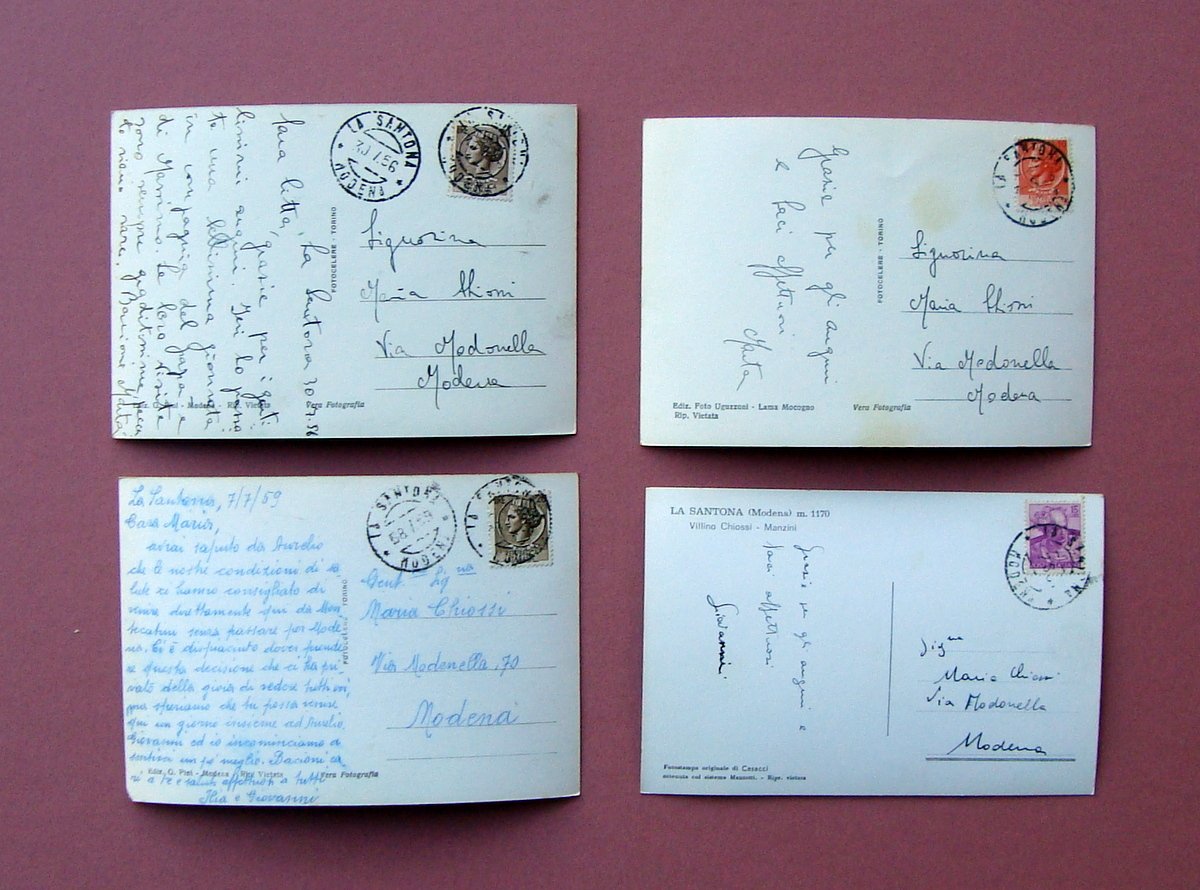 La Santona 30.7.56
Cara
grazie per i
auguri. Ieri
una bellissima giornata
in compagnia del papà e
di Massimo. Le loro visite
sono sempre graditissime
Marta
LA SANTONA
30.7.56
MODENA
Signorina
Maria Chiossi
Via Modonella
Modena
FOTOCELERE - TORINO
Modena - Rip. Vietata
Vera Fotografia
Grazie per gli auguri
e baci affettuosi
Marta
LA SANTONA
Signorina
Maria Chiossi
Via Modonella
Modena
FOTOCELERE - TORINO
Ediz. Foto Uguzzoni - Lama Mocogno
Rip. Vietata
Vera Fotografia
La Santona, 7/7/59
Cara Maria,
avrai saputo da Aurelio
che le nostre condizioni di sa
lute ci hanno consigliato di
venire direttamente qui da Mon
tecatini senza passare per Mode
na. Ci è dispiaciuto dover prende
re questa decisione che ci ha pri
vato della gioia di vedere tutti voi,
ma speriamo che tu possa venire
qui un giorno insieme ad Aurelio.
Giovanni ed io incominciamo a
sentirci un pò meglio. Bacioni ca
ri a te e saluti affettuosi a tutti
Giovanni
LA SANTONA
MODENA
Gent. Sig.na
Maria Chiossi
Via Modonella, 70
Modena
TORINO
Ediz. G. Pini - Modena - Rip. Vietata
Vera Fotografia
LA SANTONA (Modena) m. 1170
Villino Chiossi - Manzini
Grazie per gli auguri e
affettuosi
Giovanni
LA SANTONA
MODENA
Sig.na
Maria Chiossi
Via Modonella
Modena
Fotostampa originale di Casacci
eseguita col sistema Manzotti. - Ripr. vietata